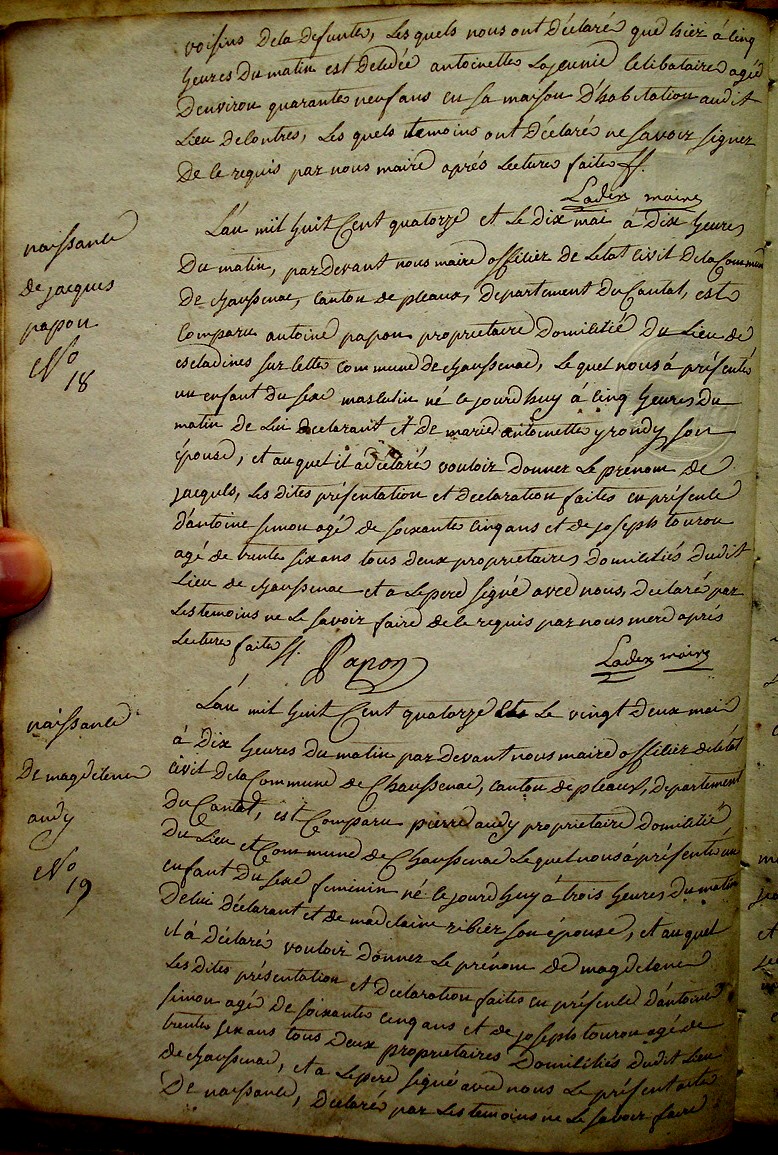 voisins de la defunte, les quels nous ont déclaré que hier à cinq
heures du matin est dcédée antoinette Lajeunie celibataire agée
d'environ quarante neuf ans en sa maison d'habitation au dit
Lieu de contres, Les quels temoins ont déclaré ne savoir signer
de le requis par nous maire aprés lecture faite ff.
Laden maire
naissance
de jacques
papon
No
18
L'an mil huit Cent quatorze et le dix mai à dix heures
du matin, pardevant nous maire officier de l'etat civil de la Commune
de chaussenac, canton de pleaux, departement du Cantal, est
Comparu antoine papon proprietaire domicilié du Lieu de
escladines sur cette commune de chaussenac, Le quel nous à présenté
un enfant du sexe masculin né ce jourd'huy à cinq heures du
matin de Lui déclarant et de marie antoinette yrondy son
épouse, et au quel il a déclaré vouloir donner Le prénom de
jacques, Les dites présentation et déclaration faites en présence
d'antoine simon agé de soixante cinq ans et de joseph touron
agé de trente six ans tous deux proprietaires domiciliés du dit
Lieu de chaussenac et a Le pere signé avec nous, déclaré par
Les temoins ne le savoir faire de le requis par nous mere aprés
Lecture faite ff.
Papon
Laden maire
naissance
De magdeleine
audy
No
19
L'an mil huit Cent quatorze Le vingt deux mai
à dix heures du matin par devant nous maire officier de l'etat
civil de la Commune de Chaussenac, canton de pleaux, departement
du Cantal, est Comparu pierre audy proprietaire domicilié
du Lieu et Commune de Chaussenac Le quel nous à présenté un
enfant du sexe feminin né ce jourd'huy à trois heures du matin
de lui déclarant et de madelaine ribier son épouse, et au quel
il à déclaré vouloir donner Le prénom de magdelane
Les dites présentation et déclaration faites en présence d'antoine
simon agé de soixante cinq ans et de joseph touron agé de
trente six ans tous deux proprietaires domiciliés du dit Lieu
de chaussenac, et a Le pere signé avec nous Le présent acte
De naissance, déclaré par Les temoins ne le savoir faire